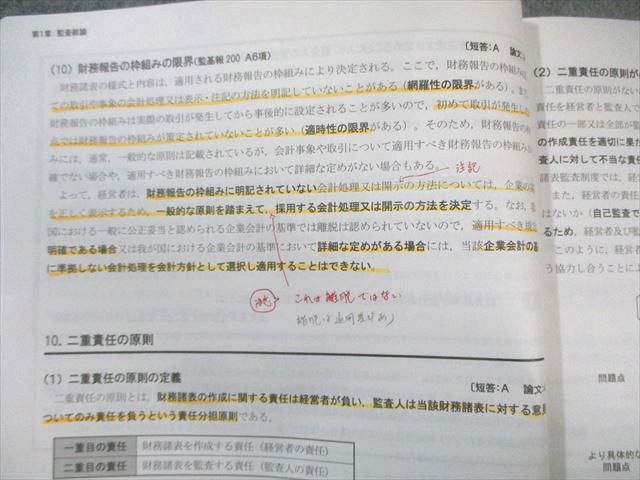 第1章 監査総論
(10) 財務報告の枠組みの限界(監基報200 A6項)
〔短答:A 論文
財務諸表の様式と内容は、適用される財務報告の枠組みにより決定される。ここで、財務報告の枠組み
ての取引や事象の会計処理又は表示・注記の方法を明記していないことがある(網羅性の限界がある)。また
財務報告の枠組みは実際の取引が発生してから事後的に設定されることが多いので、初めて取引が発生した
点では財務報告の枠組みが策定されていないことが多い(適時性の限界がある)。そのため、財務報告の枠
みには、通常、一般的な原則は記載されているが、会計事象や取引について適用すべき財務報告の枠組みが
確でない場合や、適用すべき財務報告の枠組みにおいて詳細な定めがない場合もある。
注記
よって、経営者は、財務報告の枠組みに明記されていない会計処理又は開示の方法については、企業の
を正しく表示するため、一般的な原則を踏まえて、採用する会計処理又は開示の方法を決定する。なお、
国における一般に公正妥当と認められる企業会計の基準では離脱は認められていないので、適用すべき
明確である場合又は我が国における企業会計の基準において詳細な定めがある場合には、当該企業会計の基
に準拠しない会計処理を会計方針として選択し適用することはできない。
これは離脱ではない
10. 二重責任の原則
(1) 二重責任の原則の定義
〔短答:A 論文
二重責任の原則とは、財務諸表の作成に関する責任は経営者が負い、監査人は当該財務諸表に対する意
ついてのみ責任を負うという責任分担原則である。
一重目の責任 財務諸表を作成する責任(経営者の責任)
二重目の責任 財務諸表を監査する責任(監査人の責任)
(2) 二重責任の原則が
二重責任の原則がない
責任を経営者と監査人で
責任の一部又は全部が監
の作成責任を適切に果た
査人に対して不当な責任
諸表監査制度では、経
また、経営者の責任
はないか(自己監査で
るため、経営者及び監
このように、経営者
う協力し合うことに
問題点
より具体的な
問題点